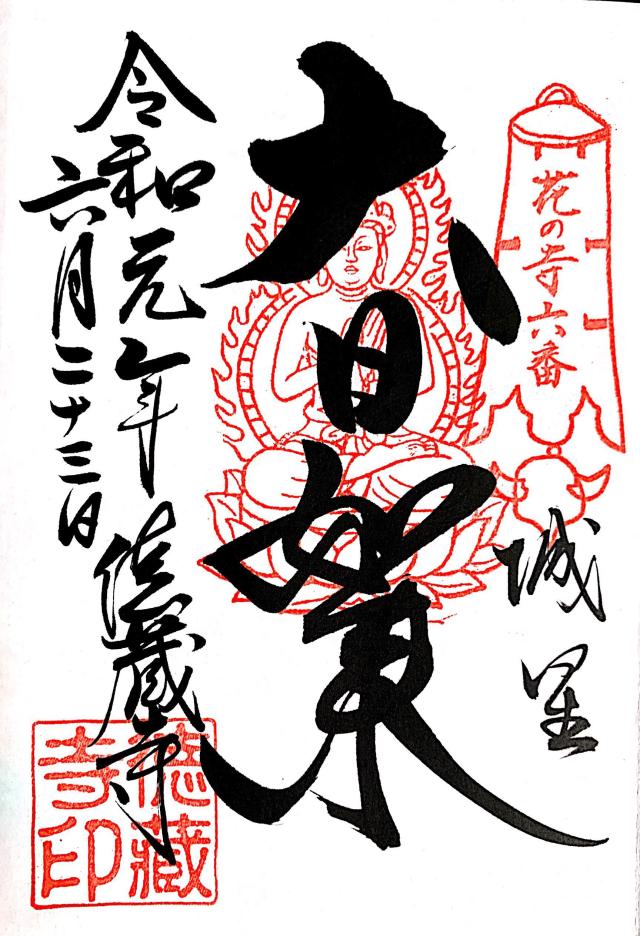 花の寺六番
城里
大日如来
令和元年
六月二十三日
徳蔵寺
徳藏
寺印